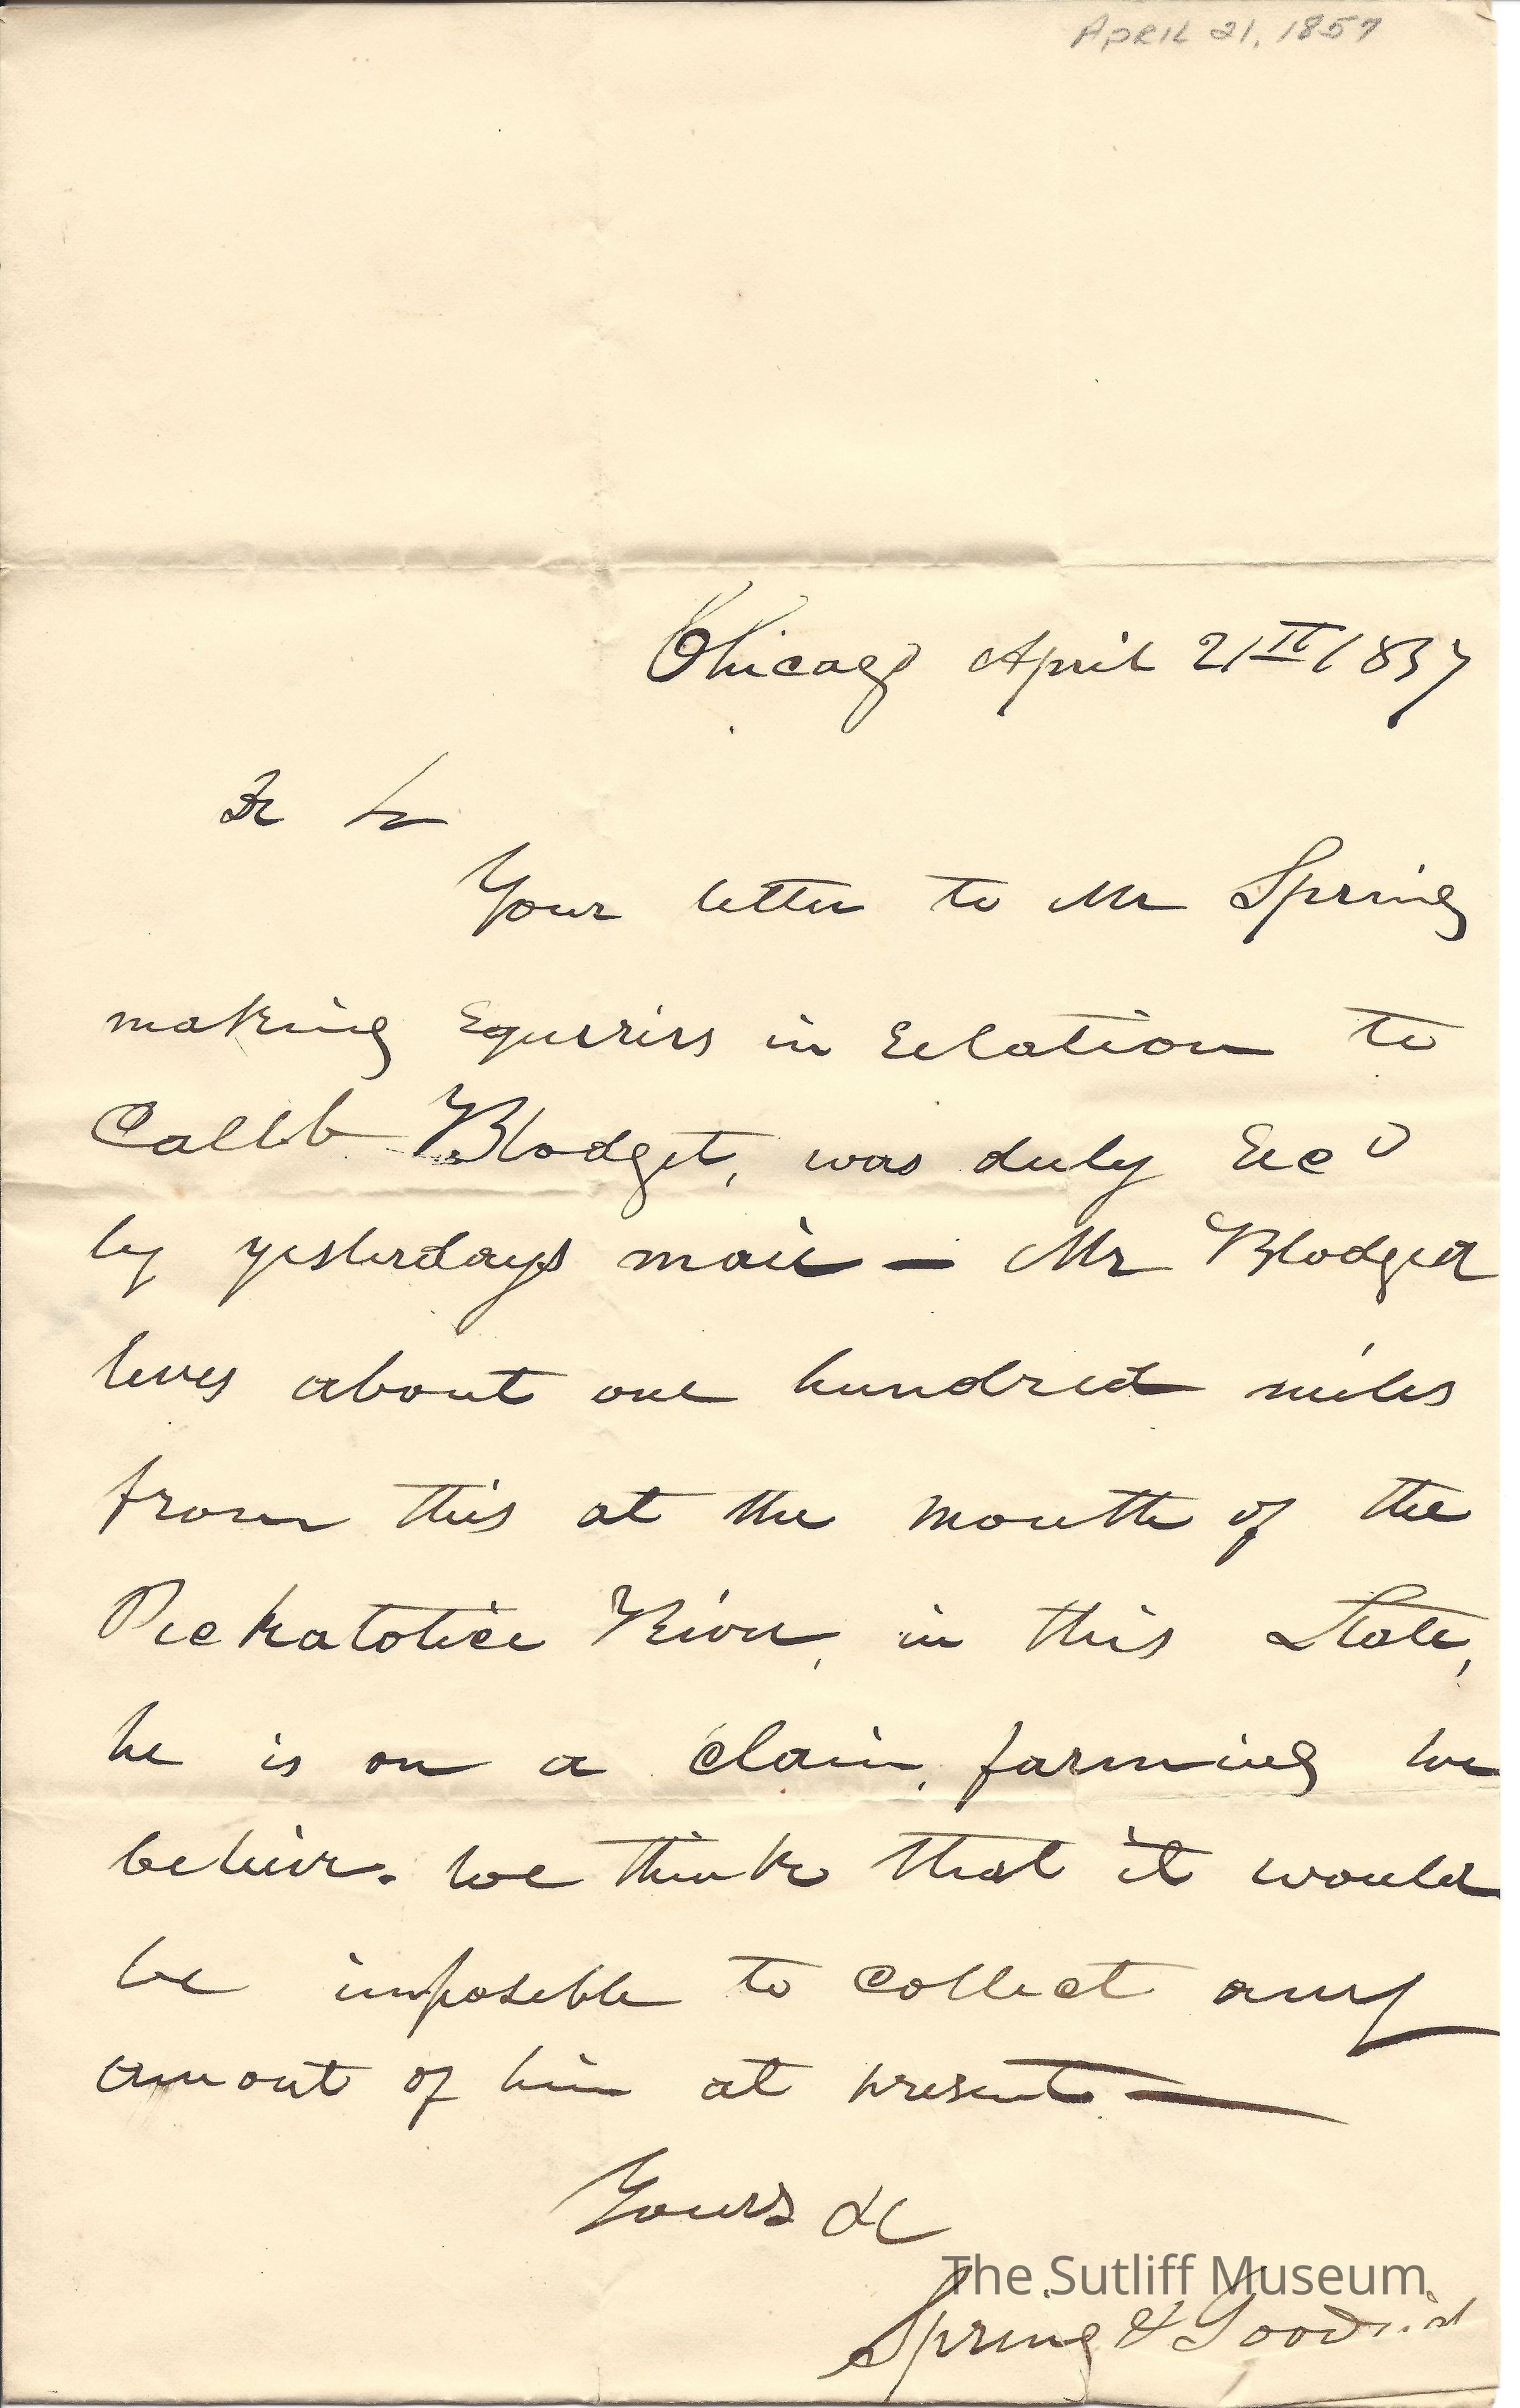 APRIL 21, 1857
Chicago April 21st 1837
Dr Sir
Your letter to Mr Spring
making Equiries in Relation to
Calleb Blodget, was duly Recd
by yesterdays mail — Mr Blodget
lives about one hundred miles
from this at the mouth of the
Peckatolice River, in this State,
he is on a claim, farming we
believe. We think that it would
be imposeble to collect any
amount of him at present —
Yours &c
The Sutliff Museum
Spring & Goodrich